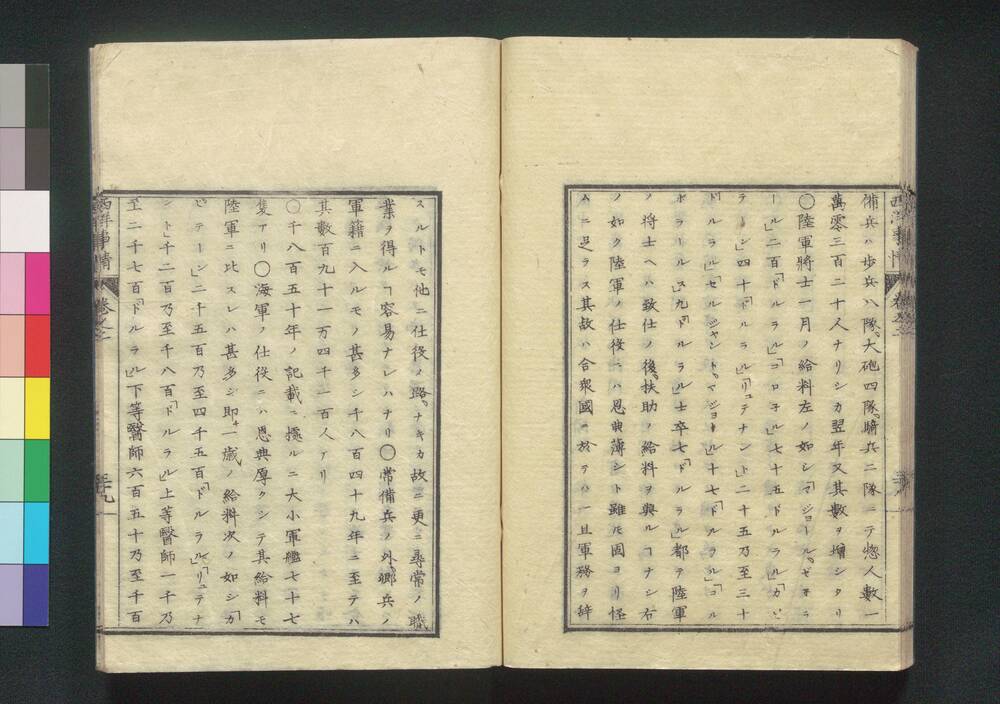 備兵ハ歩兵八隊大砲四隊騎兵二隊ニテ惣人數一
萬零三百二十人ナリシカ翌年又其數ヲ増シタリ
〇陸軍將士一月ノ給料左ノ如シ「マジョール、ゼネラ
ール」二百「ドルラル」「コロネル」七十五ドルラル」「カピ
テーン」四十「ドルラル」「リュテナント」二十五乃至三十
ドルラル」「セルジャント、マジョール」十七「ドルラル」「コル
ポラール」九「ドルラル」士卒七「ドルラル」都テ陸軍
ノ將士ヘハ致仕ノ後扶助ノ給料ヲ與ルヿナシ右
ノ如ク陸軍ノ仕役ニハ恩典薄シト雖𪜈固ヨリ怪
ムニ足ラス其故ハ合衆國ニ於テハ一旦軍務ヲ辞
西洋事情
卷之二
スルトモ他ニ仕役ノ路ナキカ故ニ更ニ尋常ノ職
業ヲ得ルヿ容易ナレハナリ〇常備兵ノ外郷兵ノ
軍籍ニ入ルモノ甚多シ千八百四十九年ニ至テハ
其數百九十一万四千一百人アリ
〇千八百五十年ノ記載ニ據ルニ大小軍艦七十七
隻アリ〇海軍ノ仕役ニハ恩典厚クシテ其給料モ
陸軍ニ比スレハ甚多シ即一歳ノ給料次ノ如シ「カ
ピテーン」二千五百乃至四千五百「ドルラル」「リュテナ
ント千二百乃至千八百「ドルラル」上等醫師一千乃
至二千七百「ドルラル」下等醫師六百五十乃至千百
西洋事情
卷之二
三十九